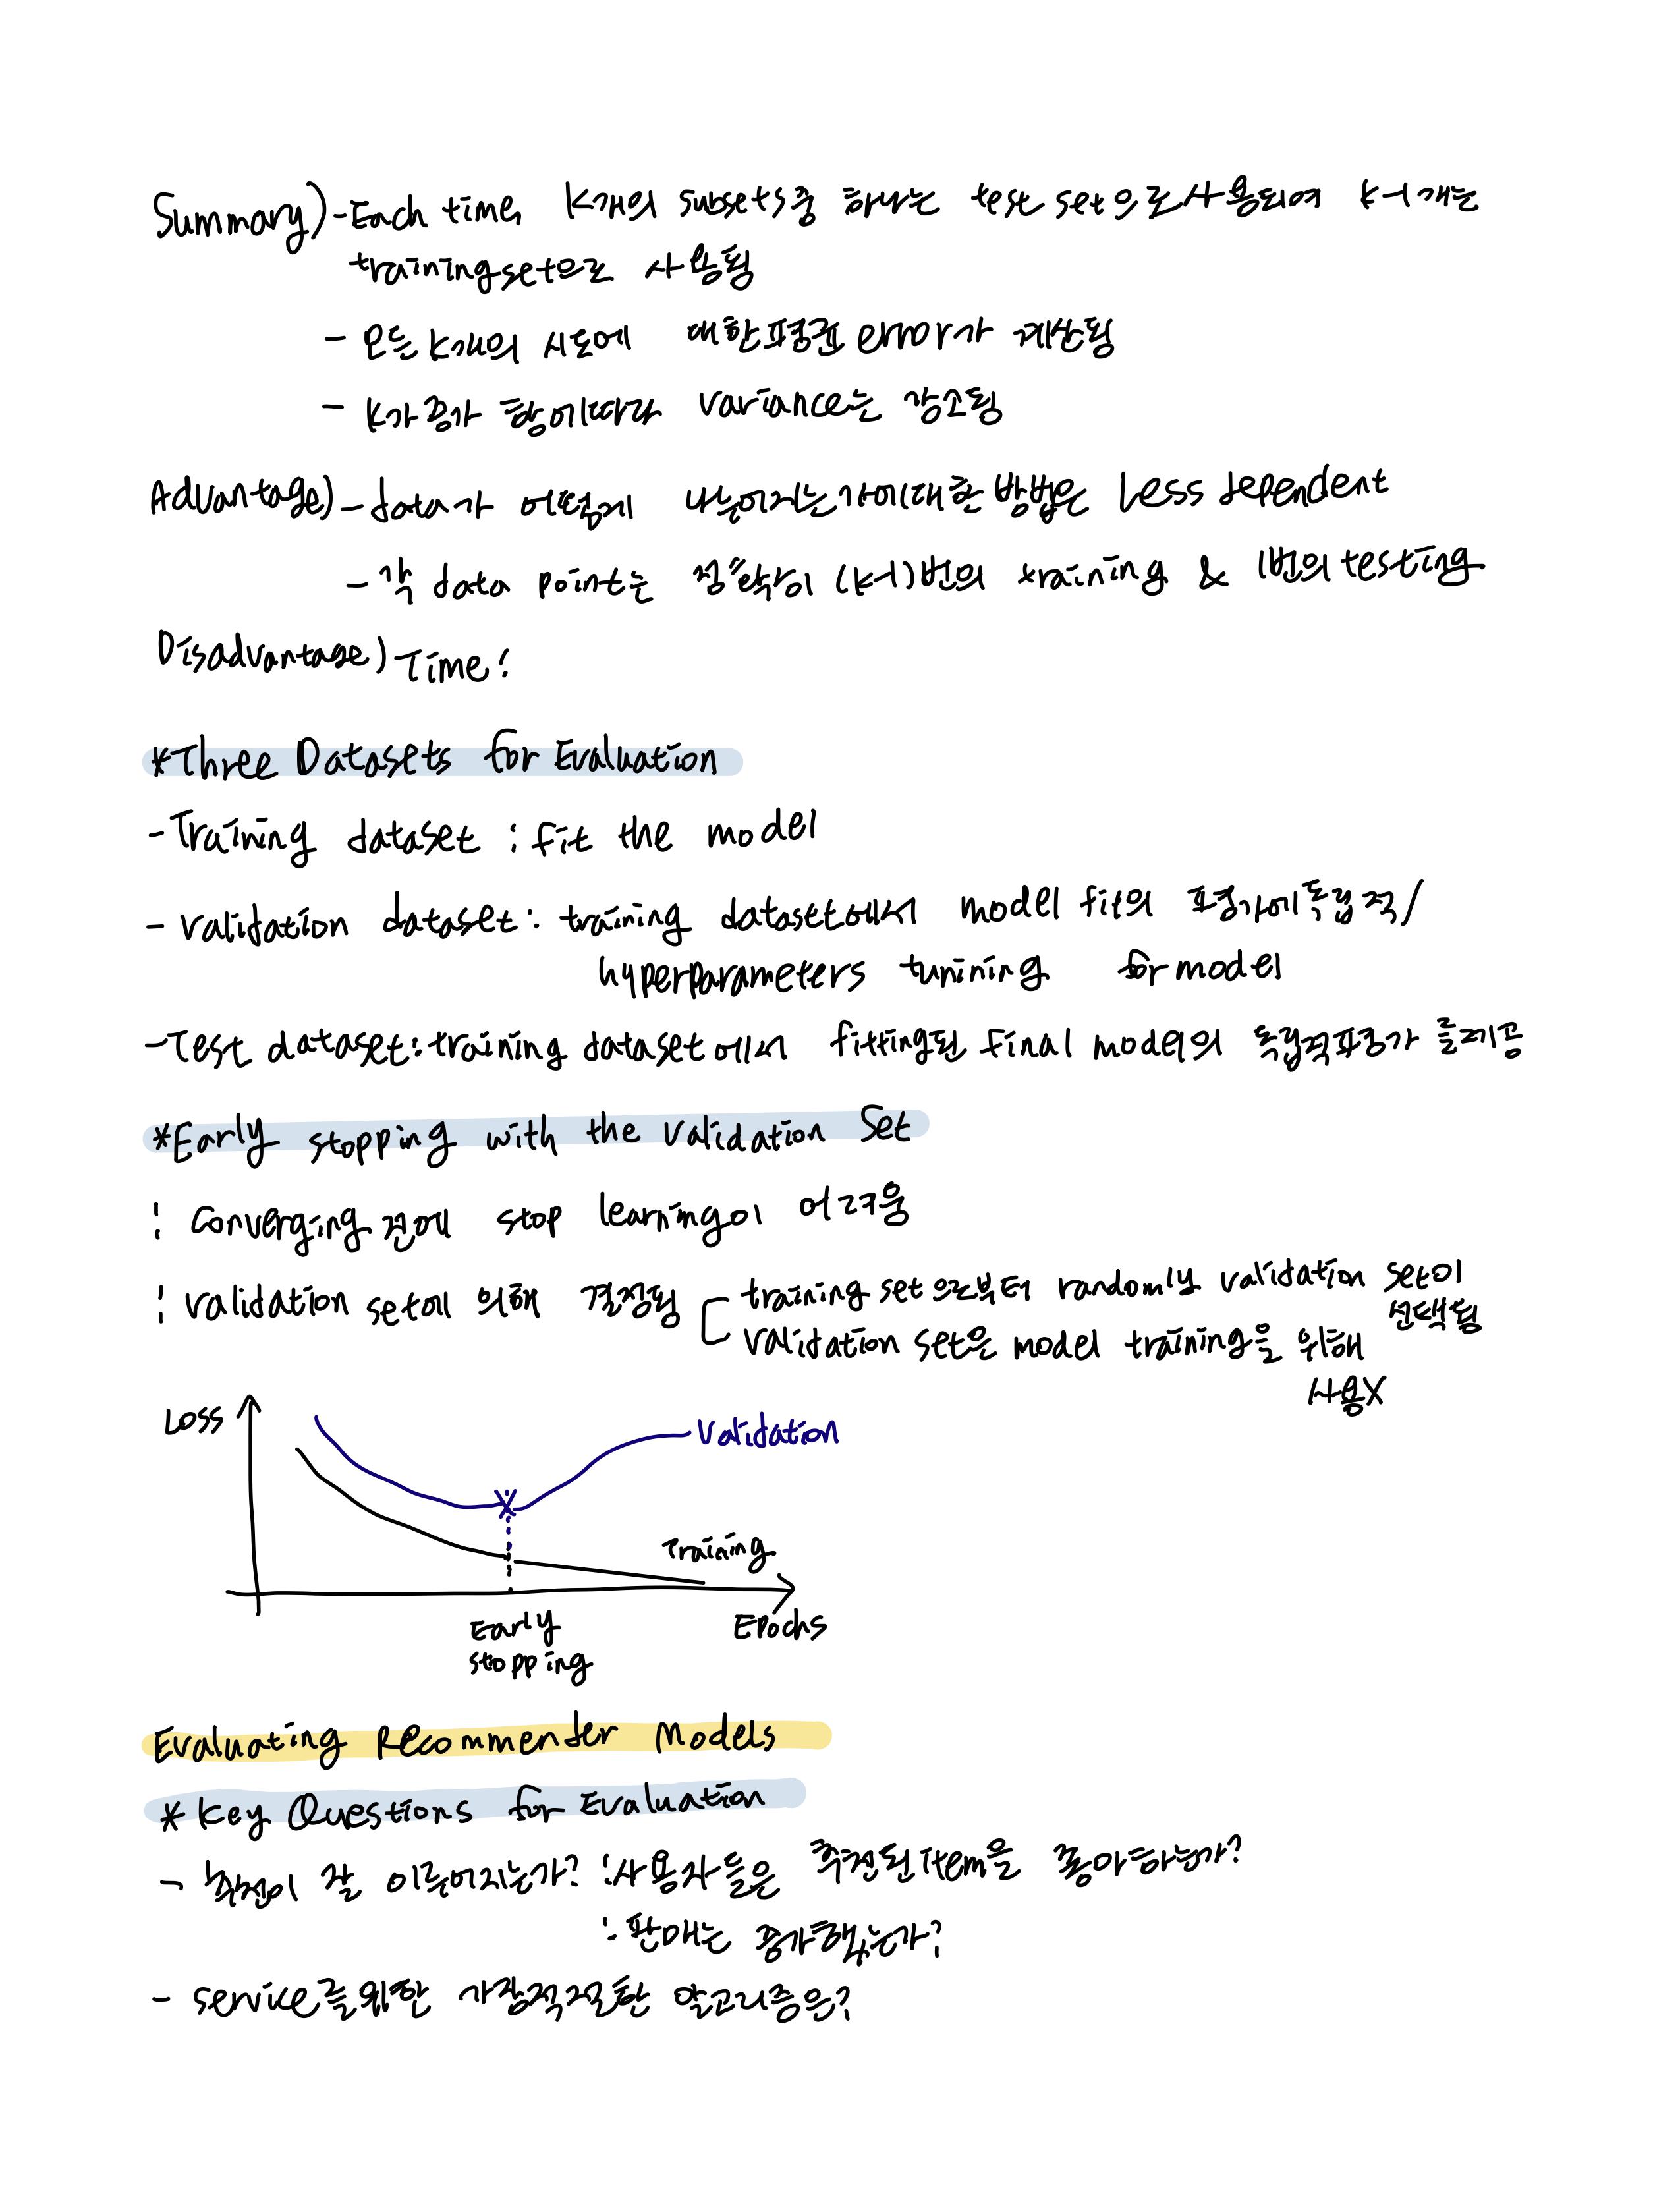 Summary) - Each time, K개의 subsets중 하나는 test set으로 사용되며 K-1개는
training set으로 사용됨
- 모든 K개의 시도에 대한 평균 error가 계산됨
- K가 증가 함에 따라 variance는 감소됨
Advantage) - data가 어떻게 나눠어지는가에 대한 방법은 Less dependent
- 각 data point는 정확히 (K-1)번의 training & 1번의 testing
Disadvantage) Time!
*Three Datasets for Evaluation
- Training dataset : fit the model
- validation dataset : training dataset에서 model fit의 평가에 독립적/
hyperparameters tunining for model
- Test dataset : training dataset에서 fitting된 final model의 독립적 평가를 제공
*Early stopping with the validation Set
: Converging 전에 stop learning이 어려움
: validation set에 의해 결정됨
training set으로부터 randomly validation set이
선택됨
validation set은 model training을 위해
사용X
Loss
validation
Training
Early
stopping
Epochs
Evaluating Recommender Models
* Key Questions for Evaluation
- 추천이 잘 이루어지는가? : 사용자들은 추천된 item을 좋아하는가?
: 판매는 증가했는가?
- service를 위한 가장 적절한 알고리즘은?